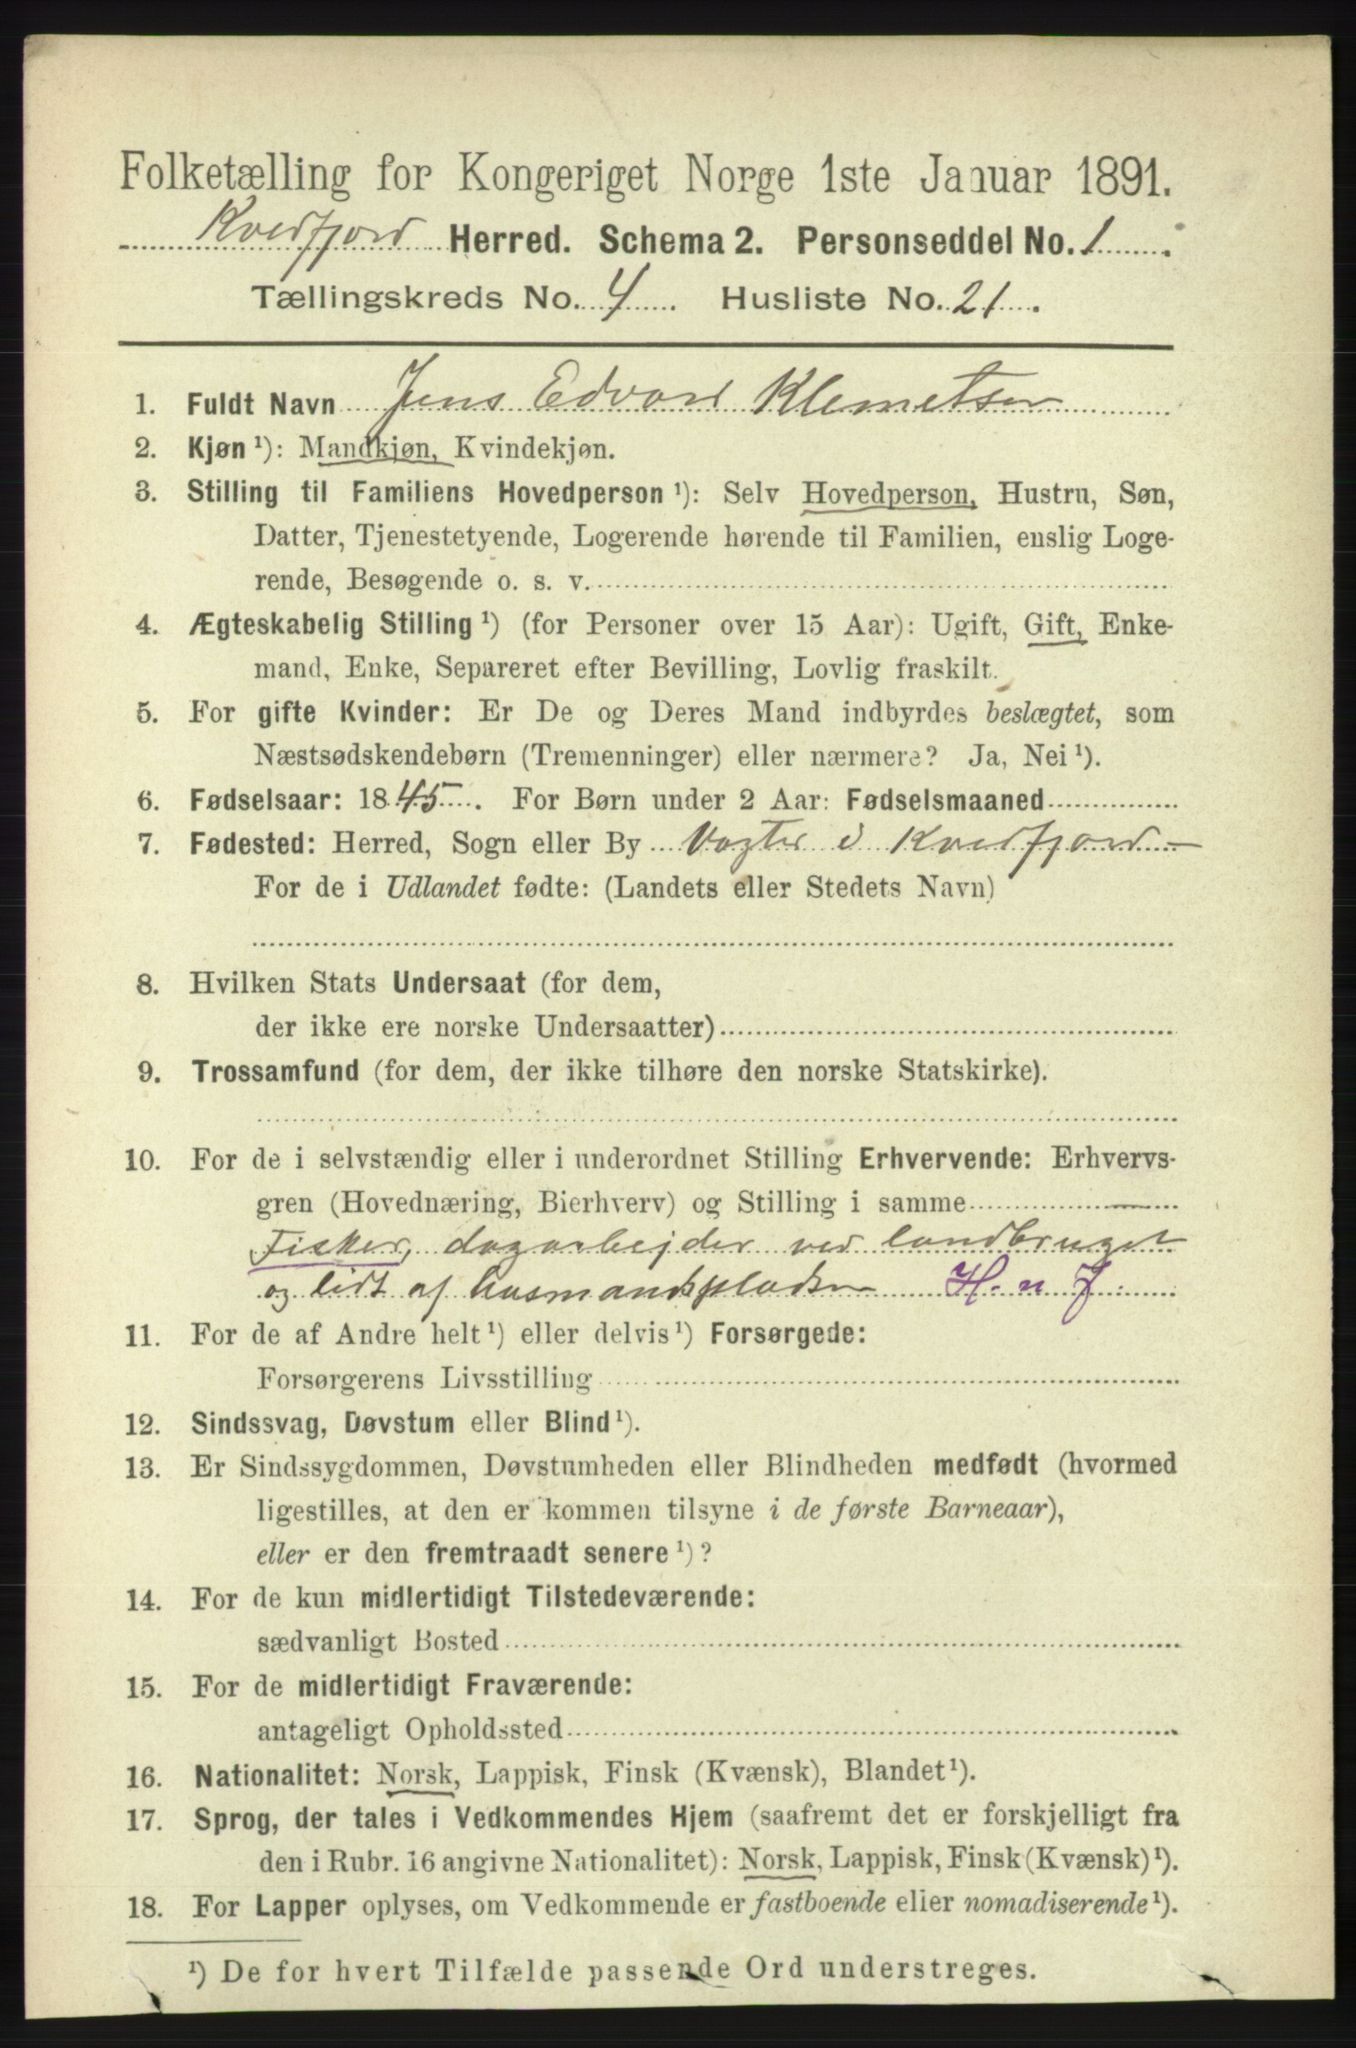 Folketælling for Kongeriget Norge 1ste Januar 1891.
Kvedfjord Herred. Schema 2. Personseddel No. 1
Tællingskreds No. 4. Husliste No. 21.
1. Fuldt Navn Jens Edvard Klemetsen
2. Kjøn ¹): Mandkjøn, Kvindekjøn.
3. Stilling til Familiens Hovedperson ¹): Selv Hovedperson, Hustru, Søn,
Datter, Tjenestetyende, Logerende hørende til Familien, enslig Loge-
rende, Besøgende o. s. v.
4. Ægteskabelig Stilling ¹) (for Personer over 15 Aar): Ugift, Gift, Enke-
mand, Enke, Separeret efter Bevilling, Lovlig fraskilt.
5. For gifte Kvinder: Er De og Deres Mand indbyrdes beslægtet, som
Næstsødskendebørn (Tremenninger) eller nærmere? Ja, Nei ¹).
6. Fødselsaar: 1845. For Børn under 2 Aar: Fødselsmaaned
7. Fødested: Herred, Sogn eller By i Kvedfjord
For de i Udlandet fødte: (Landets eller Stedets Navn)
8. Hvilken Stats Undersaat (for dem,
der ikke ere norske Undersaatter)
9. Trossamfund (for dem, der ikke tilhøre den norske Statskirke).
10. For de i selvstændig eller i underordnet Stilling Erhvervende: Erhvervs-
gren (Hovednæring, Bierhverv) og Stilling i samme
Fisker, dagarbejder ved landbruget
og lidt af husmandsplads H. n J.
11. For de af Andre helt ¹) eller delvis ¹) Forsørgede:
Forsørgerens Livsstilling
12. Sindssvag, Døvstum eller Blind ¹).
13. Er Sindssygdommen, Døvstumheden eller Blindheden medfødt (hvormed
ligestilles, at den er kommen tilsyne i de første Barneaar),
eller er den fremtraadt senere ¹)?
14. For de kun midlertidigt Tilstedeværende:
sædvanligt Bosted
15. For de midlertidigt Fraværende:
antageligt Opholdssted
16. Nationalitet: Norsk, Lappisk, Finsk (Kvænsk), Blandet ¹).
17. Sprog, der tales i Vedkommendes Hjem (saafremt det er forskjelligt fra
den i Rubr. 16 angivne Nationalitet): Norsk, Lappisk, Finsk (Kvænsk) ¹).
18. For Lapper oplyses, om Vedkommende er fastboende eller nomadiserende ¹).
¹) De for hvert Tilfælde passende Ord understreges.